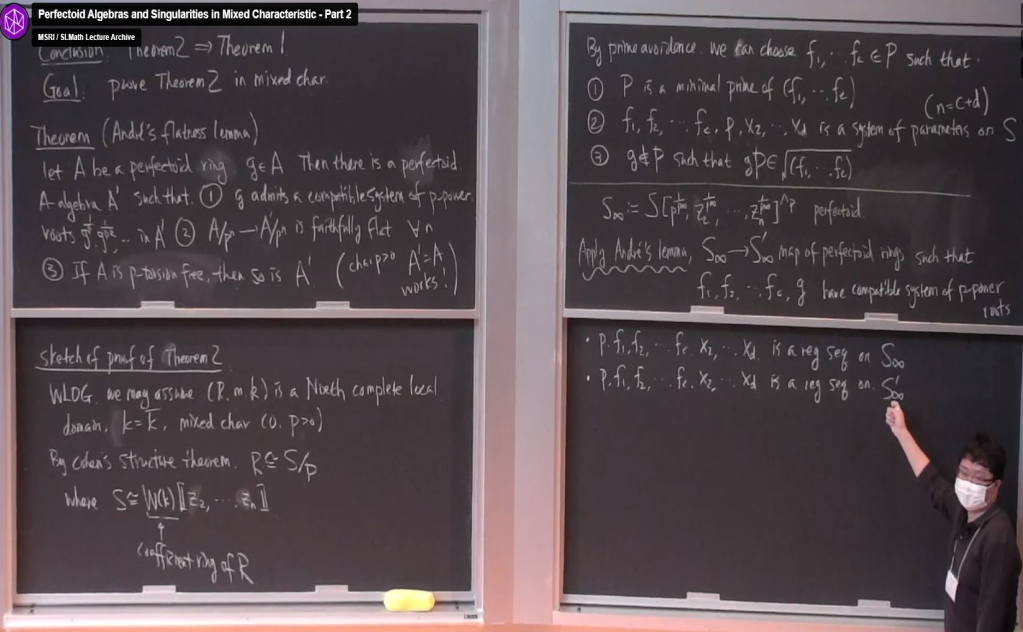 Perfectoid Algebras and Singularities in Mixed Characteristic - Part 2
MSRI / SLMath Lecture Archive
Conclusion: Theorem 2 ⇒ Theorem 1
Goal: prove Theorem 2 in mixed char.
Theorem (André's flatness lemma)
let A be a perfectoid ring g∈A Then there is a perfectoid
A-algebra A' such that. ① g admits a compatible system of p-power
roots g^{1/p}, g^{1/p^2}, .. in A' ② A/p^n → A'/p^n is faithfully flat ∀n
③ If A is p-torsion free, then so is A' (char p>0 A'=A works!)
Sketch of proof of Theorem 2
WLOG. we may assume (R, m, k) is a Noeth complete local
domain, k = k̄, mixed char (0, p>0)
By Cohen's structure theorem. R ≅ S/P
where S ≅ W(k)[[z_2, ... z_n]]
coefficient ring of R
By prime avoidance. we can choose f_1, ... f_c ∈ P such that.
① P is a minimal prime of (f_1, ... f_c)
(n=c+d)
② f_1, f_2, ... f_c, p, x_2, ... x_d is a system of parameters on S
③ g∉P such that gP ∈ √(f_1, ... f_c)
S_∞ := S[p^{1/p^∞}, z_2^{1/p^∞}, ..., z_n^{1/p^∞}]^{∧p} perfectoid.
Apply André's lemma, S_∞ → S'_∞ map of perfectoid rings such that
f_1, f_2, ... f_c, g have compatible system of p-power
roots
• p, f_1, f_2, ... f_c, x_2, ... x_d is a reg seq on S_∞
• p, f_1, f_2, ... f_c, x_2, ... x_d is a reg seq on S'_∞